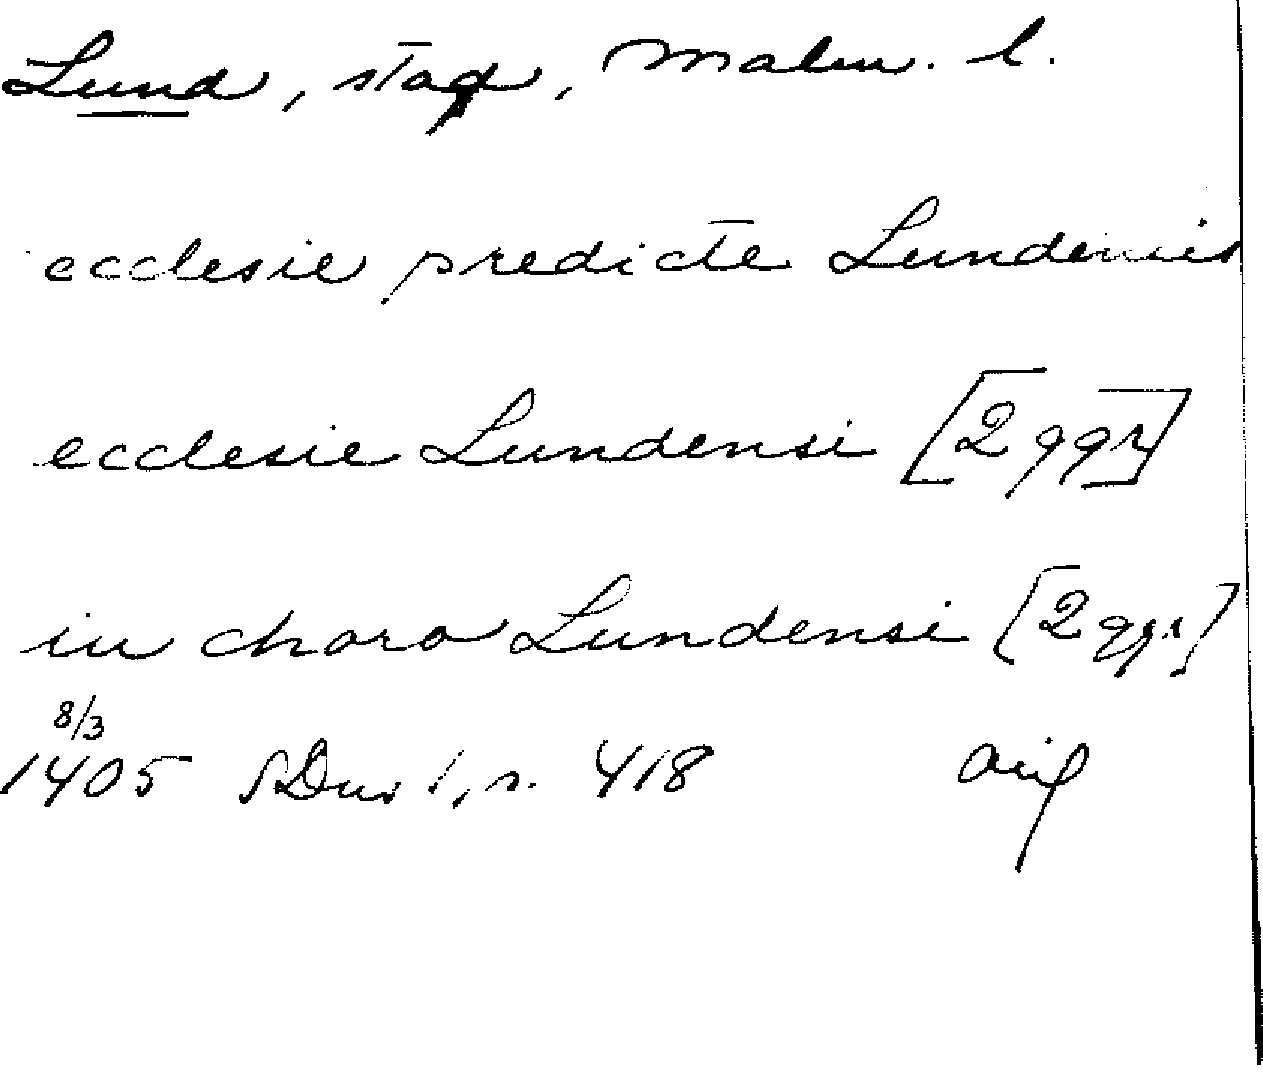 Lund, stad, Malm. l.
ecclesie predicte Lundensis
ecclesie Lundensi [2 ggr]
in choro Lundensi [2 ggr]
8/3
1405 SDns 1, s. 418